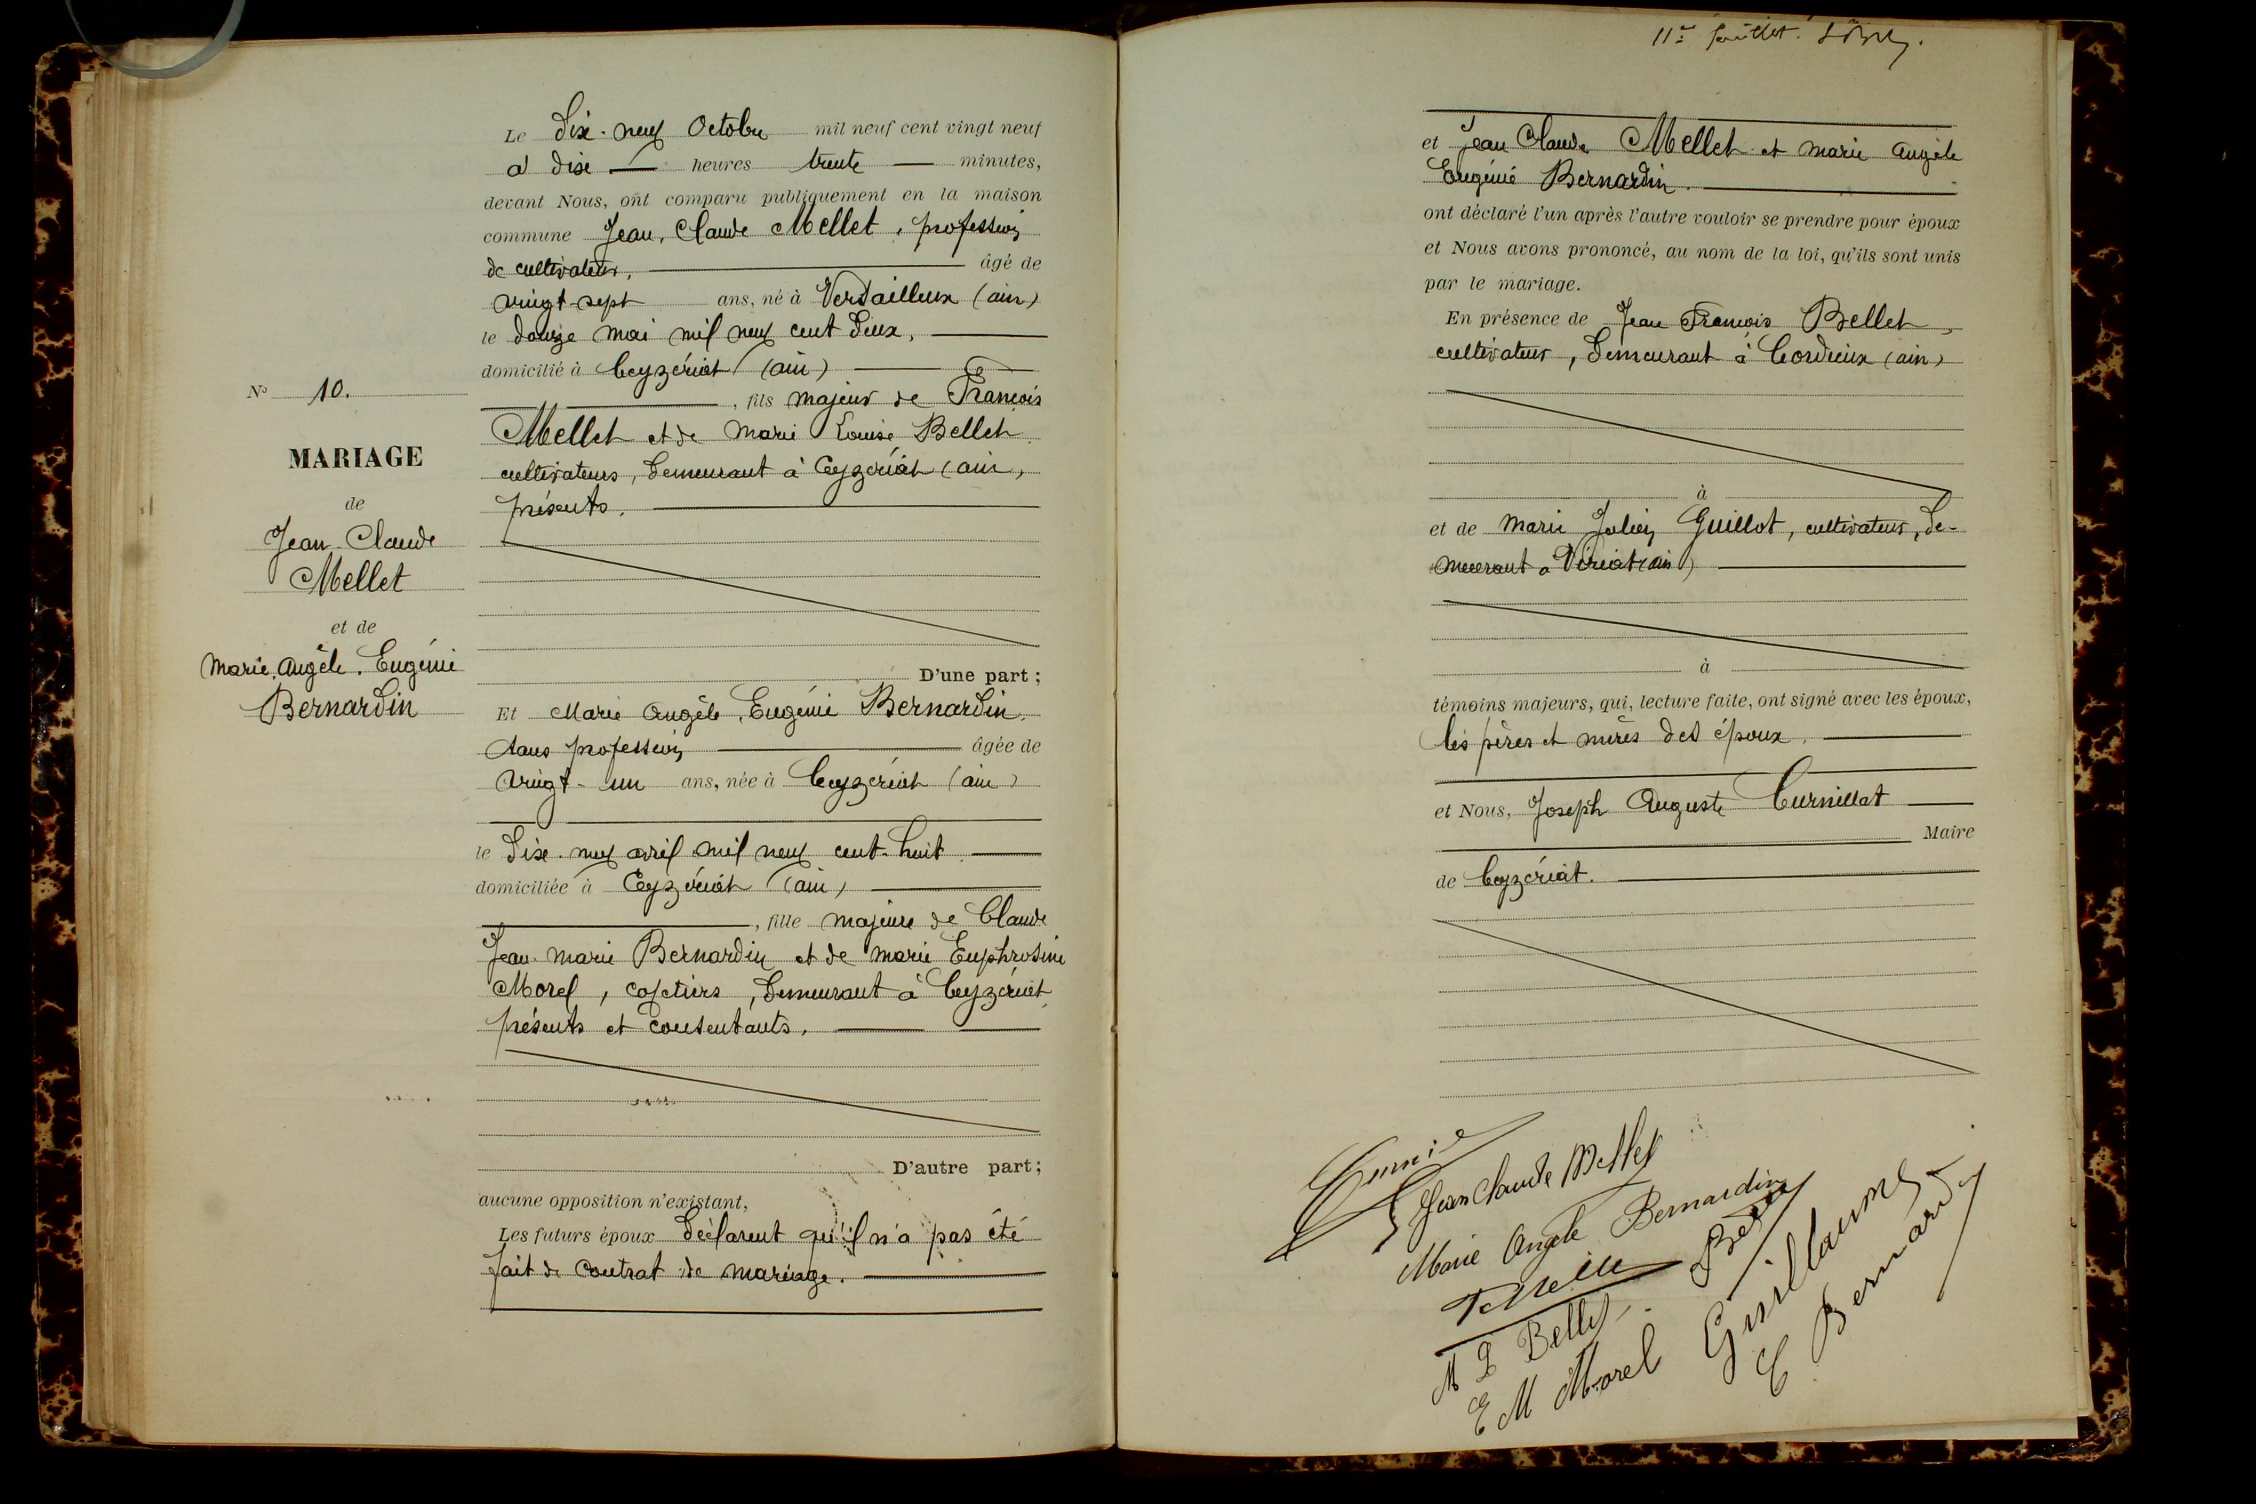 Le Dix-neuf Octobre mil neuf cent vingt neuf
à dix heures trente minutes,
devant Nous, ont comparu publiquement en la maison
commune Jean, Claude Mellet, profession
de cultivateur, âgé de
vingt-sept ans, né à Versailleux (ain)
le douze mai mil neuf cent deux,
domicilié à Ceyzériat (ain)
, fils majeur de François
Mellet et de Marie Louise Bellet
cultivateurs, demeurant à Ceyzériat (ain,
présents.
D'une part ;
Et Marie Angèle, Eugénie Bernardin,
sans profession âgée de
vingt-un ans, née à Ceyzériat (ain)
le dix-neuf avril mil neuf cent-huit
domiciliée à Ceyzériat (ain)
, fille majeure de Claude
Jean-Marie Bernardin et de Marie Euphrosine
Morel, cafetiers, demeurant à Ceyzériat
présents et consentants.
D'autre part ;
aucune opposition n'existant,
Les futurs époux déclarent qu'il n'a pas été
fait de contrat de mariage.
No 10.
MARIAGE
de
Jean-Claude
Mellet
et de
Marie, Angèle, Eugénie
Bernardin
11e feuillet.
et Jean Claude Mellet et Marie Angèle
Eugénie Bernardin.
ont déclaré l'un après l'autre vouloir se prendre pour époux
et Nous avons prononcé, au nom de la loi, qu'ils sont unis
par le mariage.
En présence de Jean François Bellet,
cultivateur, demeurant à Cordieux (ain)
à
et de Marie Julien Guillot, cultivateur, de-
meurant à Viriat (ain)
à
témoins majeurs, qui, lecture faite, ont signé avec les époux,
les pères et mères des époux,
et Nous, Joseph Auguste Curnillat
Maire
de Ceyzériat.
Jean Claude Mellet
Marie Angèle Bernardin
M L Bellet
E M Morel
C Bernardin